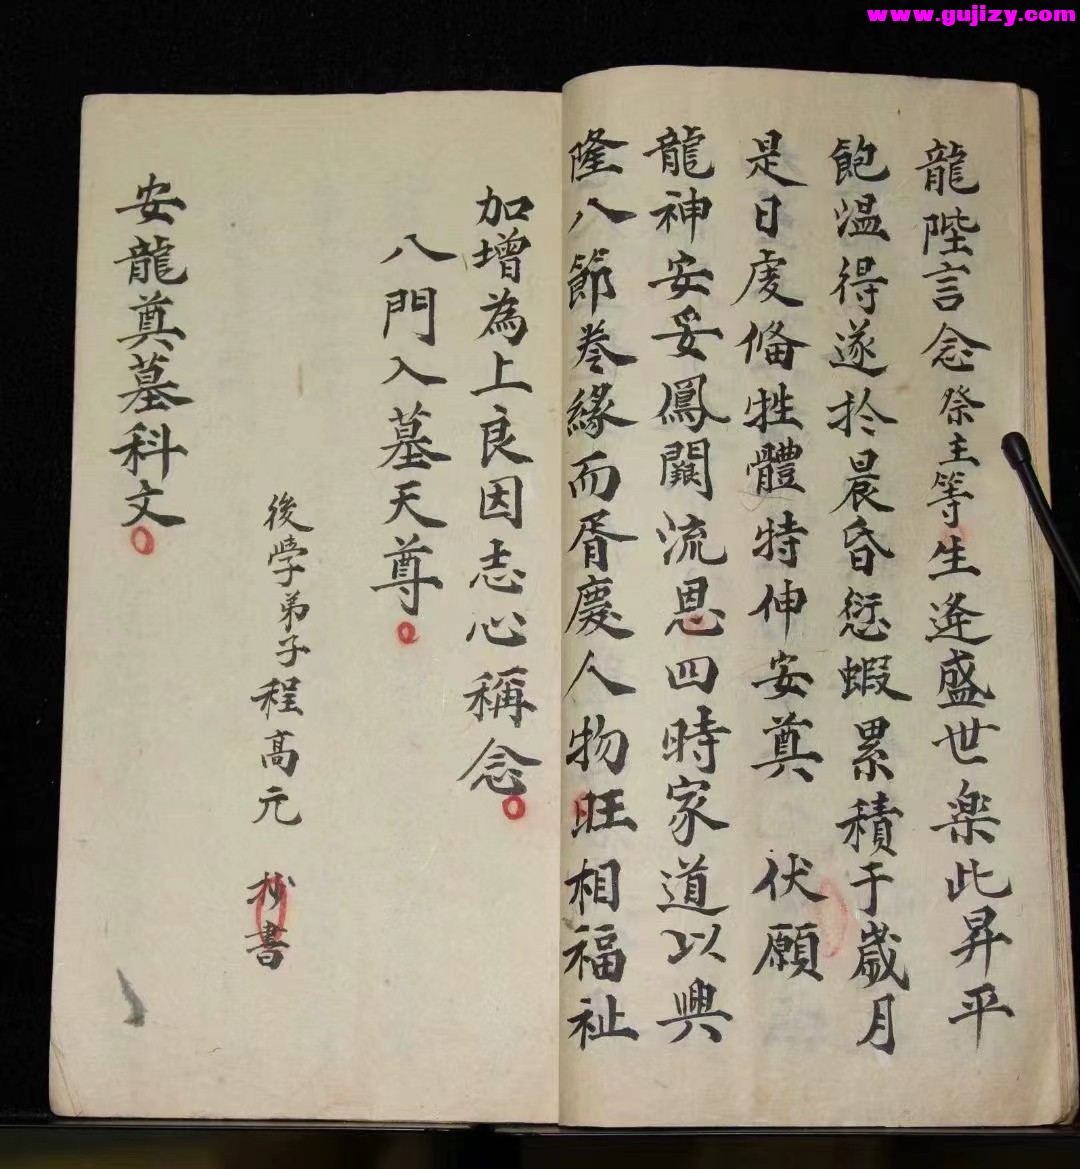 www.gujizy.com
龍陛言念祭主等生逄盛世楽此昇平
飽温得遂於晨昏愆蝦累積于歲月
是日虔俻牲體特伸安奠 伏願
龍神安妥鳳闕流恩四時家道以興
隆八節荃緣而胥慶人物旺相福祉
加增為上良因志心稱念
八門入墓天尊
後學弟子程高元 抄書
安龍奠墓科文